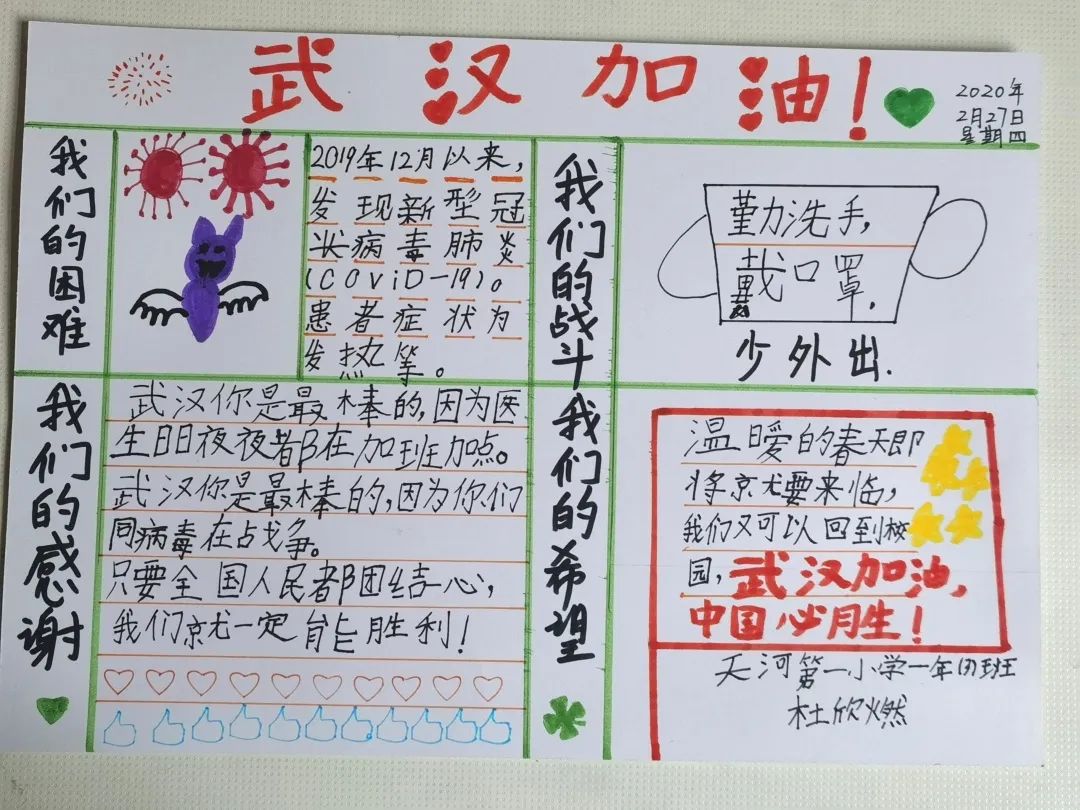 武汉加油!
2020年
2月27日
星期四
我们的困难
2019年12月以来,
发现新型冠
状病毒肺炎
(COViD-19)。
患者症状为
发热等。
我们的战斗
勤力洗手,
戴口罩,
少外出.
我们的感谢
武汉你是最棒的,因为医
生日日夜夜都在加班加点。
武汉你是最棒的,因为你们
同病毒在占戈争。
只要全国人民都团结一心,
我们就一定能胜利!
我们的希望
温暧的春天即
将就要来临,
我们又可以回到校
园,武汉加油,
中国必胜!
天河第一小学一年班
杜欣燃